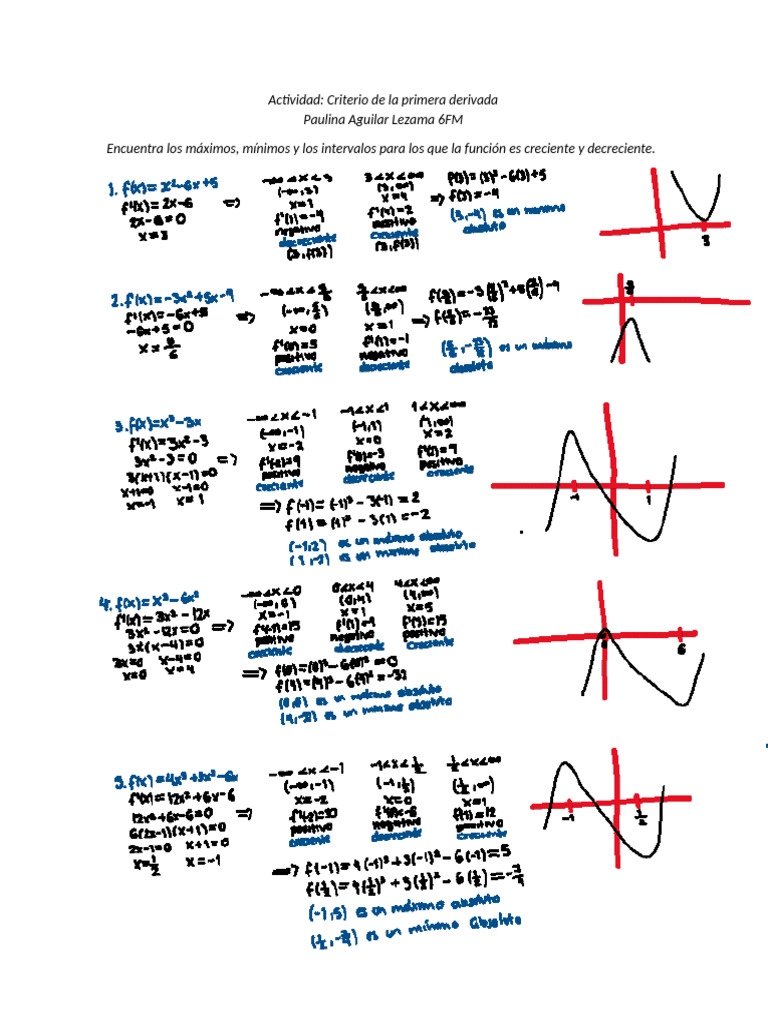 Actividad: Criterio de la primera derivada
Paulina Aguilar Lezama 6FM
Encuentra los máximos, mínimos y los intervalos para los que la función es creciente y decreciente.
1. f(x) = x² - 6x + 5
f'(x) = 2x - 6
2x - 6 = 0
x = 3
=>
-∞ < x < 3
(-∞, 3)
x = 1
f'(1) = -4
negativo
decreciente
(3, f(3))
3 < x < ∞
(3, ∞)
x = 4
f'(4) = 2
positivo
creciente
(3, f(3))
=>
f(3) = (3)² - 6(3) + 5
f(3) = -4
(3, -4) es un mínimo
absoluto
3
2. f(x) = -3x² + 5x - 9
f'(x) = -6x + 5
-6x + 5 = 0
x = 5/6
=>
-∞ < x < 5/6
(-∞, 5/6)
x = 0
f'(0) = 5
positivo
creciente
5/6 < x < ∞
(5/6, ∞)
x = 1
f'(1) = -1
negativo
decreciente
=>
es un máximo
absoluto
3. f(x) = x³ - 3x
f'(x) = 3x² - 3
3x² - 3 = 0
3(x+1)(x-1) = 0
x+1=0 x-1=0
x=-1 x=1
=>
-∞ < x < -1
(-∞, -1)
x = -2
f'(-2) = 9
positivo
creciente
-1 < x < 1
(-1, 1)
x = 0
f'(0) = -3
negativo
decreciente
1 < x < ∞
(1, ∞)
x = 2
f'(2) = 9
positivo
creciente
=> f(-1) = (-1)³ - 3(-1) = 2
f(1) = (1)³ - 3(1) = -2
(-1, 2) es un máximo absoluto
(1, -2) es un mínimo absoluto
-1 1
4. f(x) = x³ - 6x²
f'(x) = 3x² - 12x
3x² - 12x = 0
3x(x-4) = 0
3x=0 x-4=0
x=0 x=4
=>
-∞ < x < 0
(-∞, 0)
x = -1
f'(-1) = 15
positivo
creciente
0 < x < 4
(0, 4)
x = 1
f'(1) = -9
negativo
decreciente
4 < x < ∞
(4, ∞)
x = 5
f'(5) = 15
positivo
creciente
=> f(0) = (0)³ - 6(0)² = 0
f(4) = (4)³ - 6(4)² = -32
(0, 0) es un máximo absoluto
(4, -32) es un mínimo absoluto
6
5. f(x) = 4x³ + 3x² - 6x
f'(x) = 12x² + 6x - 6
12x² + 6x - 6 = 0
6(2x-1)(x+1) = 0
2x-1=0 x+1=0
x=1/2 x=-1
=>
-∞ < x < -1
(-∞, -1)
x = -2
f'(-2) = 30
positivo
creciente
-1 < x < 1/2
(-1, 1/2)
x = 0
f'(0) = -6
negativo
decreciente
1/2 < x < ∞
(1/2, ∞)
x = 1
f'(1) = 12
positivo
creciente
=> f(-1) = 4(-1)³ + 3(-1)² - 6(-1) = 5
f(1/2) = 4(1/2)³ + 3(1/2)² - 6(1/2) = -7/4
(-1, 5) es un máximo absoluto
(1/2, -7/4) es un mínimo absoluto
-1 1/2